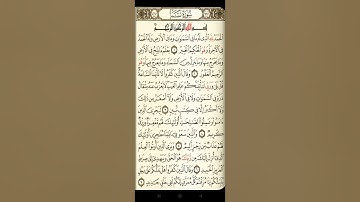 سُورَةُ سَبَإٍ
بِسْمِ اللَّهِ الرَّحْمَٰنِ الرَّحِيمِ
الْحَمْدُ لِلَّهِ الَّذِي لَهُ مَا فِي السَّمَٰوَٰتِ وَمَا فِي الْأَرْضِ وَلَهُ الْحَمْدُ
فِي الْآخِرَةِ وَهُوَ الْحَكِيمُ الْخَبِيرُ ١ يَعْلَمُ مَا يَلِجُ فِي الْأَرْضِ
وَمَا يَخْرُجُ مِنْهَا وَمَا يَنزِلُ مِنَ السَّمَاءِ وَمَا يَعْرُجُ فِيهَا وَهُوَ
الرَّحِيمُ الْغَفُورُ ٢ وَقَالَ الَّذِينَ كَفَرُوا لَا تَأْتِينَا السَّاعَةُ
قُلْ بَلَىٰ وَرَبِّي لَتَأْتِيَنَّكُمْ عَٰلِمِ الْغَيْبِ لَا يَعْزُبُ عَنْهُ مِثْقَالُ ذَرَّةٍ
فِي السَّمَٰوَٰتِ وَلَا فِي الْأَرْضِ وَلَا أَصْغَرُ مِن ذَٰلِكَ وَلَا أَكْبَرُ
إِلَّا فِي كِتَٰبٍ مُّبِينٍ ٣ لِّيَجْزِيَ الَّذِينَ
ءَامَنُوا وَعَمِلُوا الصَّٰلِحَٰتِ أُولَٰئِكَ لَهُم مَّغْفِرَةٌ وَرِزْقٌ
كَرِيمٌ ٤ وَالَّذِينَ سَعَوْ فِي ءَايَٰتِنَا مُعَٰجِزِينَ أُولَٰئِكَ لَهُمْ
عَذَابٌ مِّن رِّجْزٍ أَلِيمٌ ٥ وَيَرَى الَّذِينَ أُوتُوا الْعِلْمَ
الَّذِي أُنزِلَ إِلَيْكَ مِن رَّبِّكَ هُوَ الْحَقَّ وَيَهْدِي إِلَىٰ صِرَٰطِ
الْعَزِيزِ الْحَمِيدِ ٦ وَقَالَ الَّذِينَ كَفَرُوا هَلْ نَدُلُّكُمْ عَلَىٰ رَجُلٍ
يُنَبِّئُكُمْ إِذَا مُزِّقْتُمْ كُلَّ مُمَزَّقٍ إِنَّكُمْ لَفِي خَلْقٍ جَدِيدٍ ٧